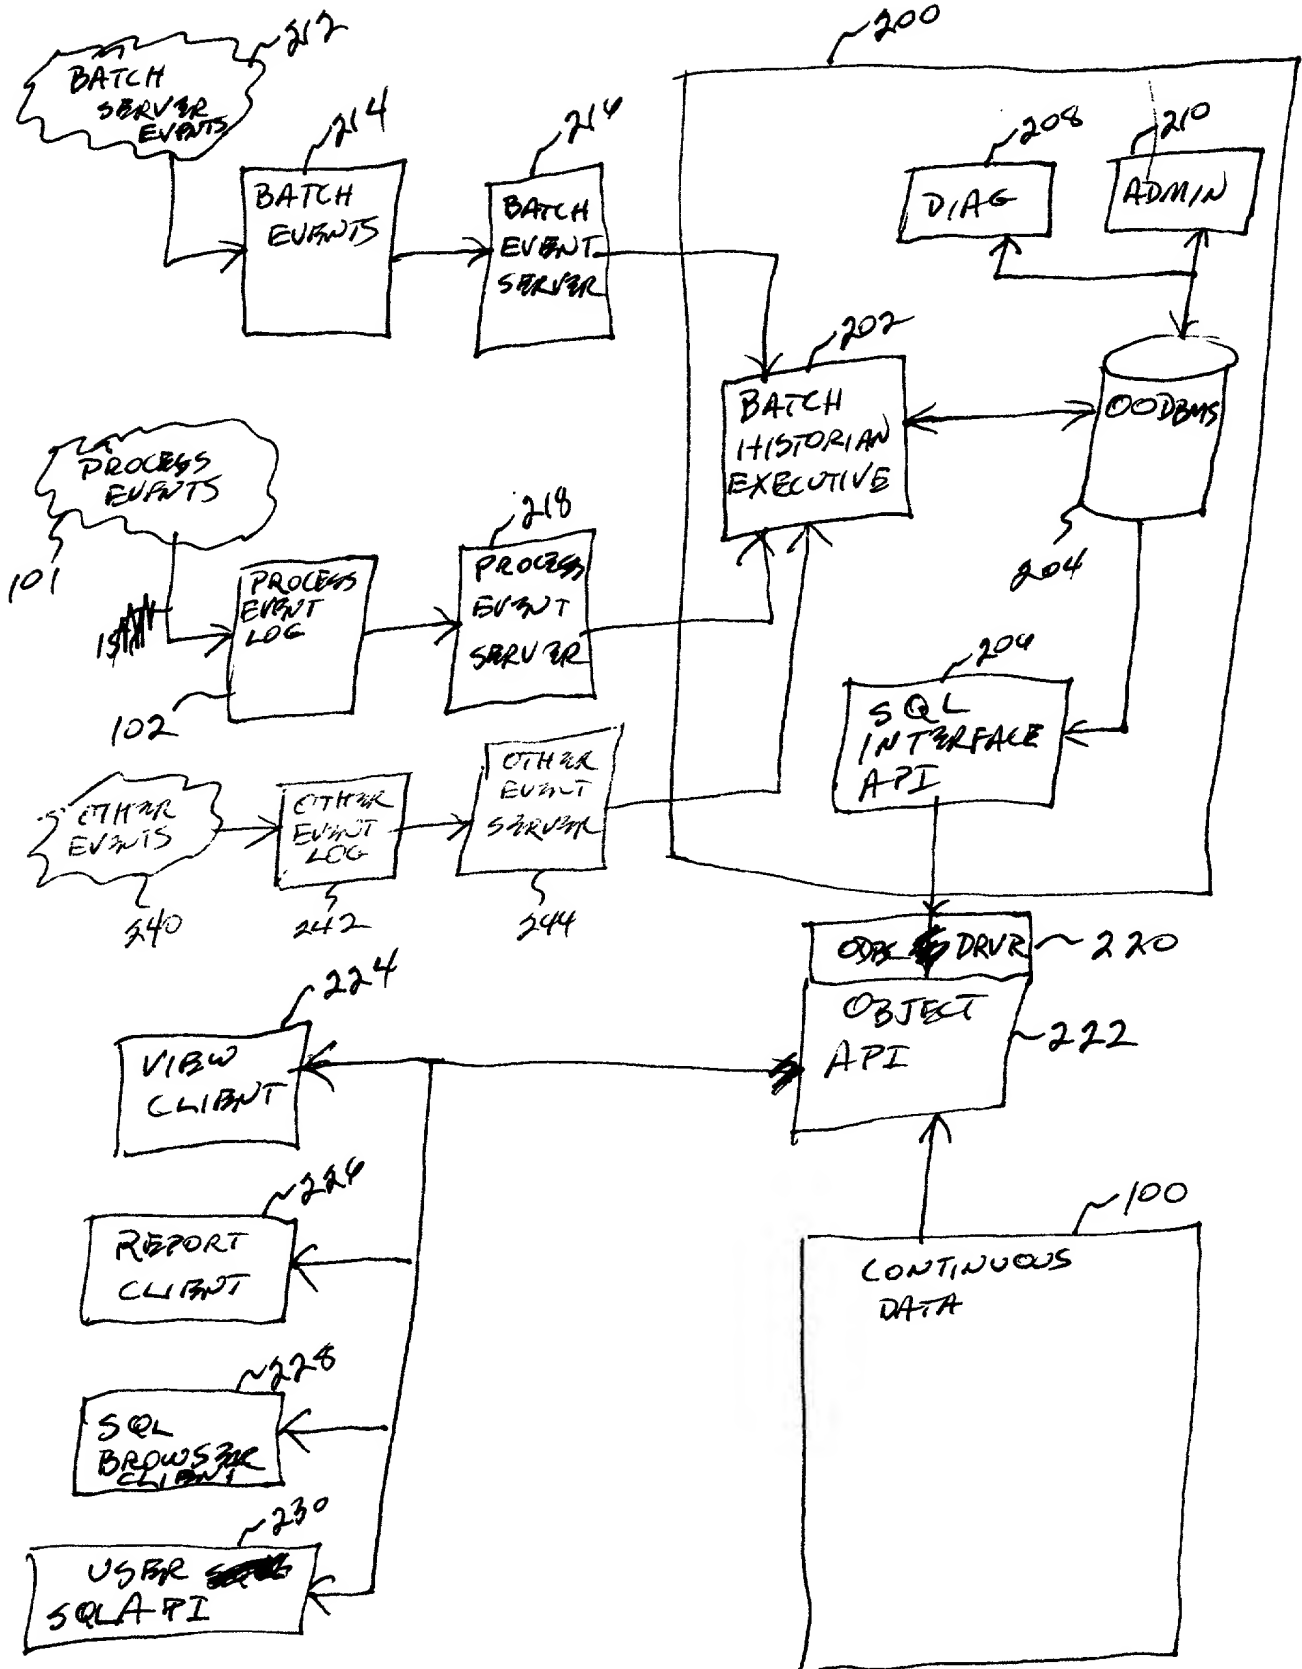 200
212
BATCH
SERVER
EVENTS
214
BATCH
EVENTS
216
BATCH
EVENT
SERVER
208
DIAG
210
ADMIN
202
BATCH
HISTORIAN
EXECUTIVE
OODBMS
204
PROCESS
EVENTS
101
PROCESS
EVENT
LOG
102
218
PROCESS
EVENT
SERVER
206
SQL
INTERFACE
API
OTHER
EVENTS
240
OTHER
EVENT
LOG
242
OTHER
EVENT
SERVER
244
ODBC DRVR
220
OBJECT
API
222
224
VIEW
CLIENT
226
REPORT
CLIENT
228
SQL
BROWSER
CLIENT
230
USER
SQL API
100
CONTINUOUS
DATA